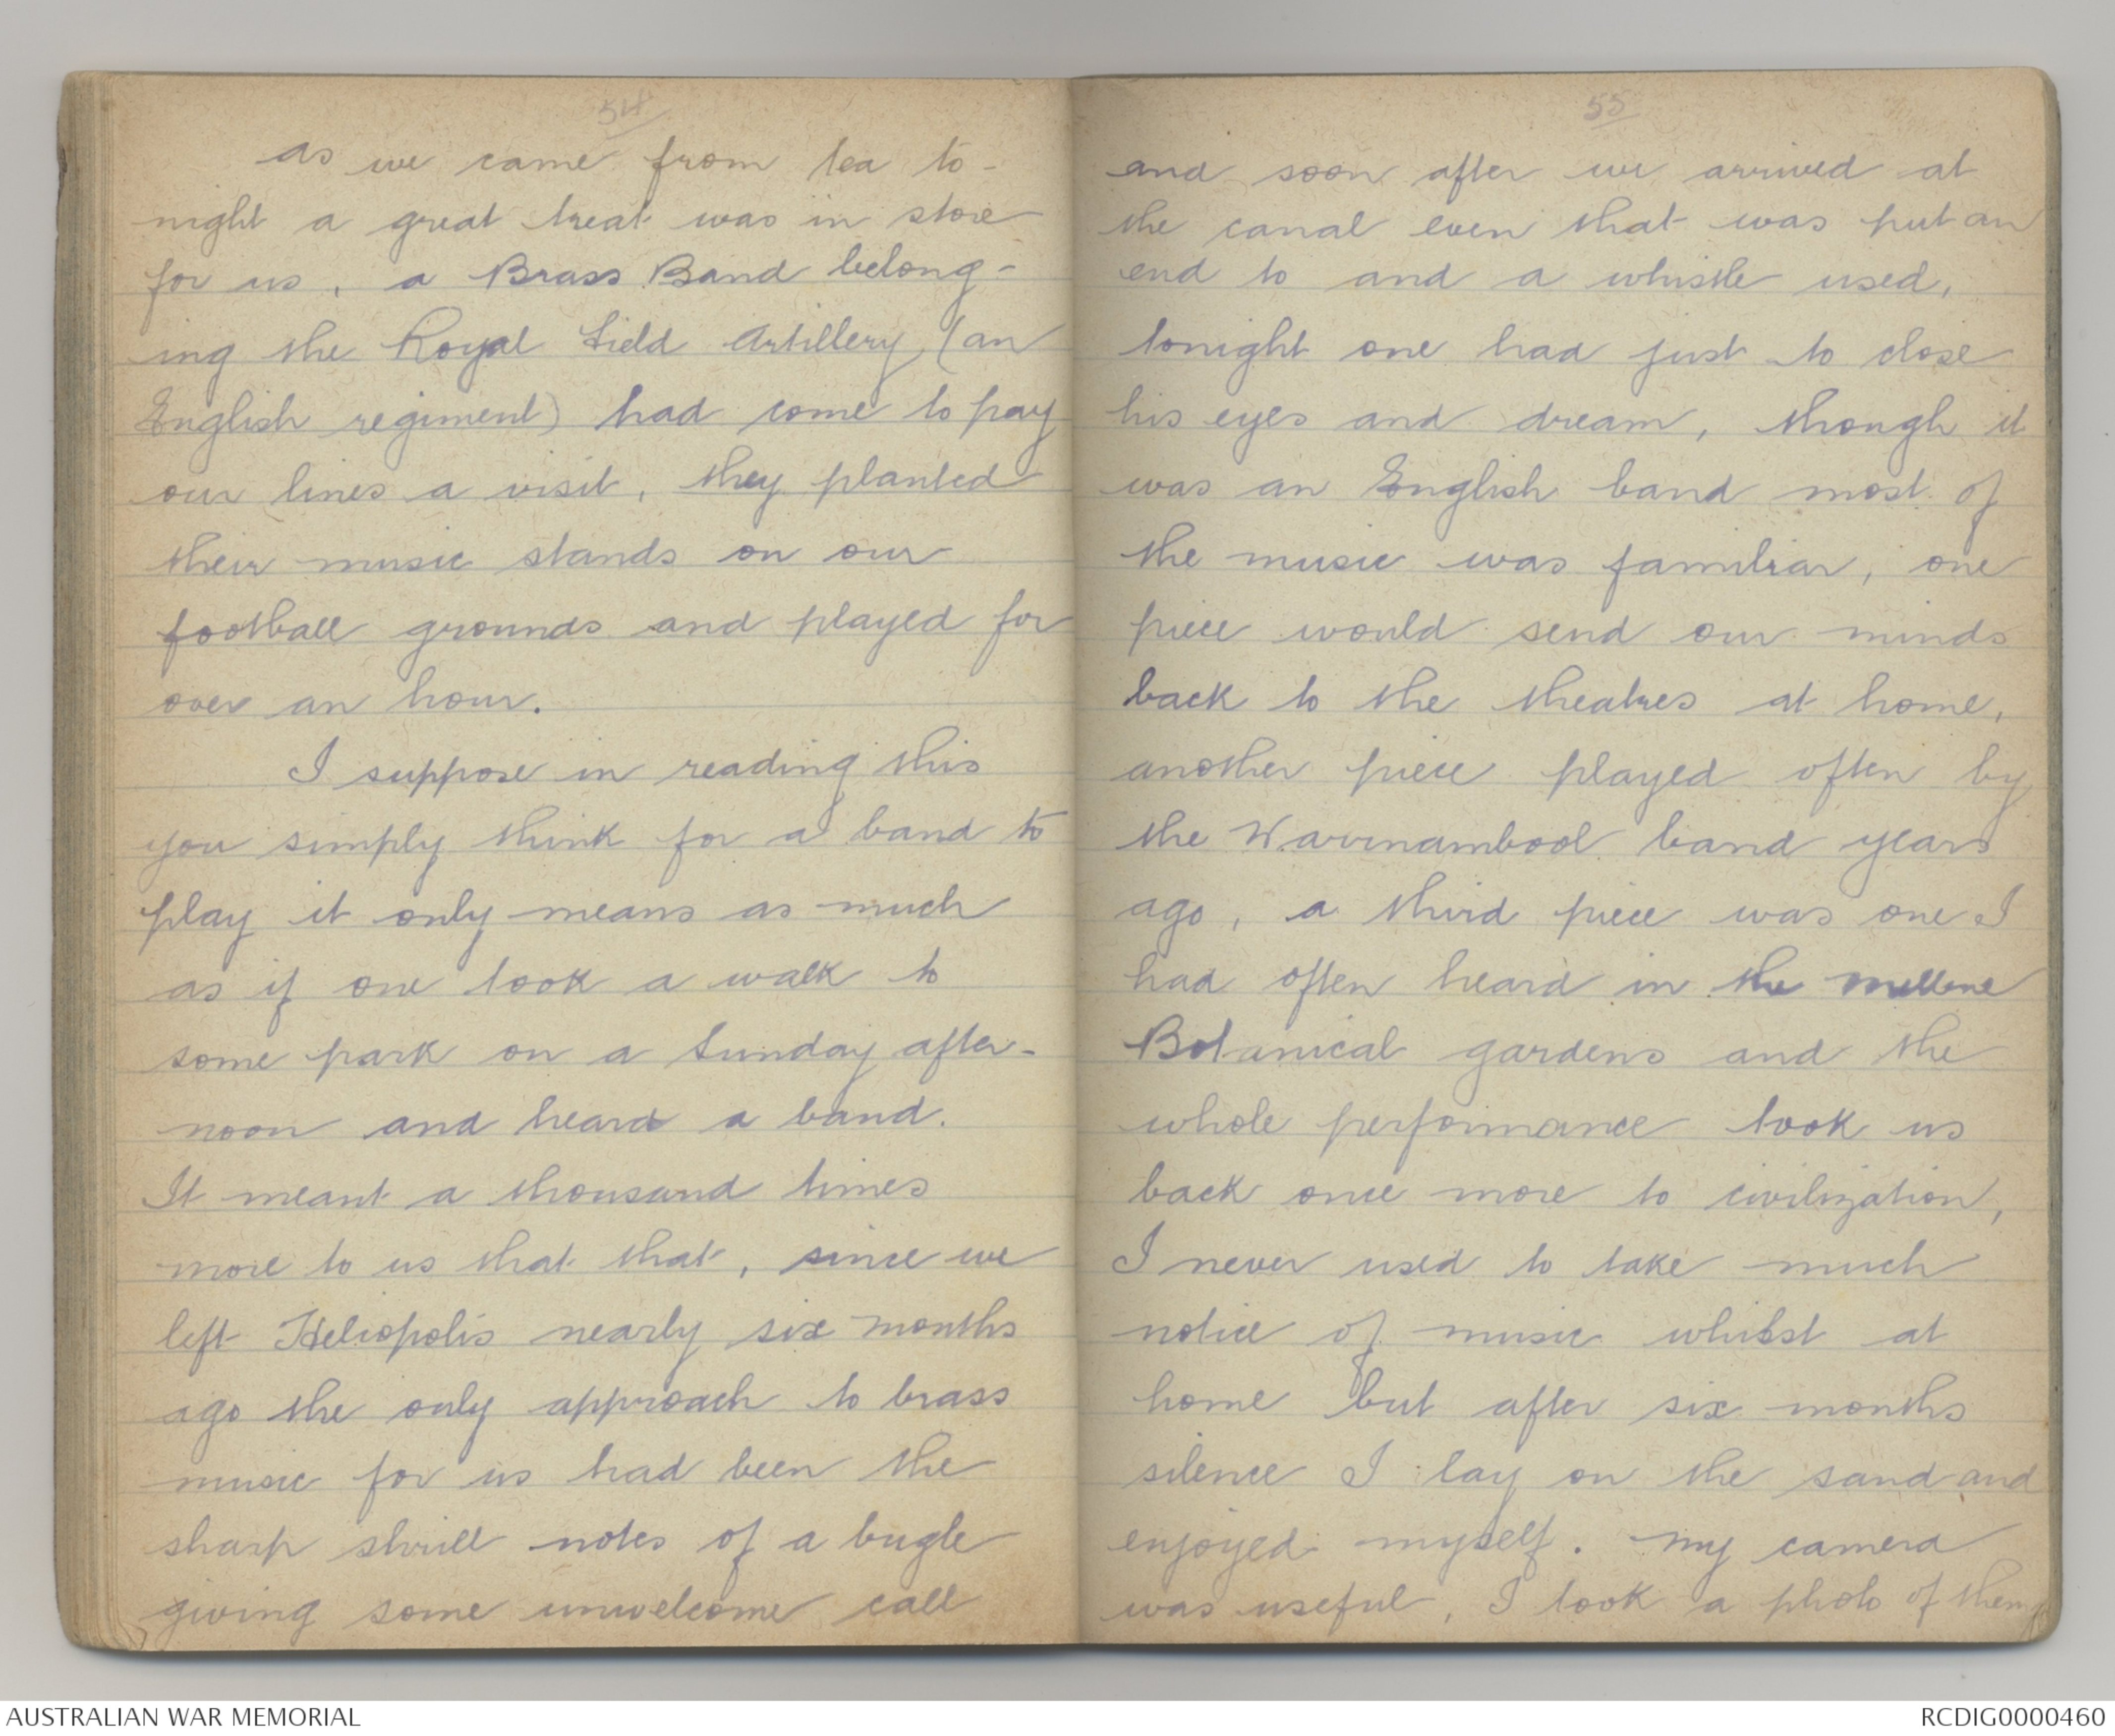 54
as we came from tea to-
night a great treat was in store
for us, a Brass Band belong-
ing the Royal Field Artillery (an
English regiment) had come to pay
our lines a visit, they planted
their music stands on our
football grounds and played for
over an hour.
I suppose in reading this
you simply think for a band to
play it only means as much
as if one took a walk to
some park on a Sunday after-
noon and heard a band.
It meant a thousand times
more to us that that, since we
left Heliopolis nearly six months
ago the only approach to brass
music for us had been the
sharp shrill notes of a bugle
giving some unwelcome call
55
and soon after we arrived at
the canal even that was put an
end to and a whistle used,
tonight one had just to close
his eyes and dream, though it
was an English band most of
the music was familiar, one
piece would send our minds
back to the theatres at home,
another piece played often by
the Warrnambool band years
ago, a third piece was one I
had often heard in the
Botanical gardens and the
whole performance took us
back once more to civilization,
I never used to take much
notice of music whilst at
home but after six months
silence I lay on the sand and
enjoyed myself. My camera
was useful, I took a photo of them
AUSTRALIAN WAR MEMORIAL
RCDIG0000460